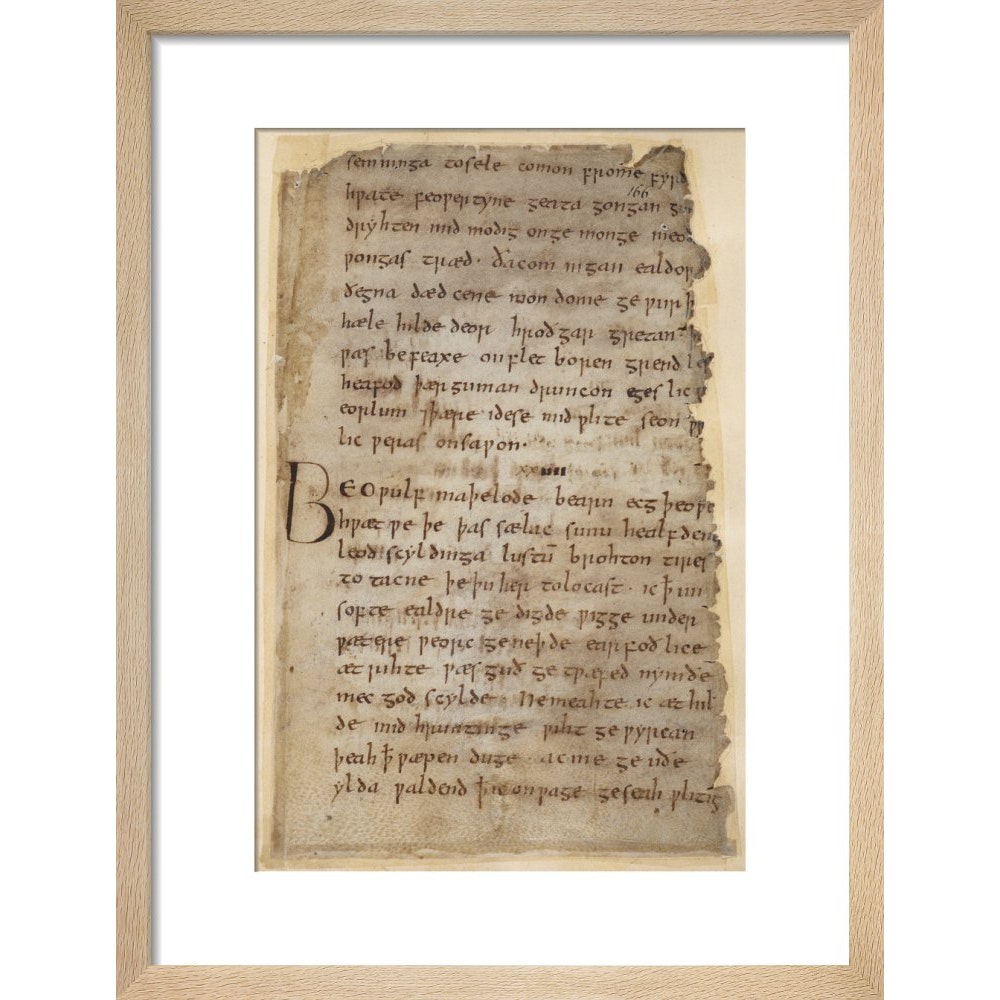 semninga tosele comon frome fyrd
166
hƿate feoƿertyne geata gongan
dryhten mid modig onge monge meod
ƿongas træd. ða com ingan ealdor
ðegna dæd cene mon dome ge ƿurþ
hæle hilde deor hroðgar gretan þ
ƿæs be feaxe on flet boren grendl
heafod þær guman druncon eges lic
eorlum ⁊ þære idese mid ƿlite seon
lic ƿeras onsaƿon.
xxiiii
BEOƿulf maþelode bearn ecg þeoƿe
hƿæt ƿe þe þas sælac sunu healfdene
leod scyldinga lustū brohton tires
to tacne þe þu her tolocast. ic ꝥ un
softe ealdre ge digde ƿigge under
ƿætere ƿeorc geneþde earfoð lice
æt rihte ƿæs guð ge tƿæfed nymðe
mec god scylde. Ne meahte ic æt hil
de mid hruntinge ƿiht ge ƿyrcan
þeah ꝥ ƿæpen duge. ac me ge uðe
ylda ƿaldend ꝥ ic on ƿage geseah ƿlitig